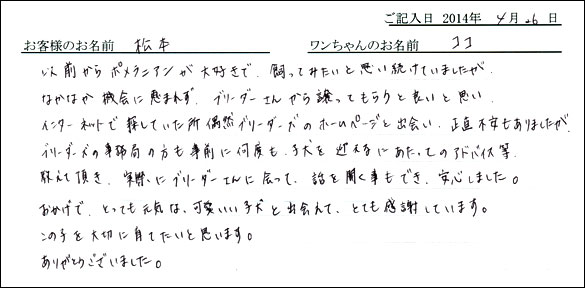 ご記入日 2014年 4月26日
お客様のお名前 松本 ワンちゃんのお名前 ココ
以前からポメラニアンが大好きで、飼ってみたいと思い続けていましたが、
なかなか機会に恵まれず、ブリーダーさんから譲ってもらうと良いと思い、
インターネットで探していた所偶然ブリーダーズのホームページと出会い、正直不安もありましたが、
ブリーダーズの事務局の方も事前に何度も、子犬を迎えるにあたってのアドバイス等、
教えて頂き、実際にブリーダーさんに会って、話を聞く事もでき、安心しました。
おかげで、とっても元気な、可愛いい子犬と出会えて、とても感謝しています。
この子を大切に育てたいと思います。
ありがとうございました。